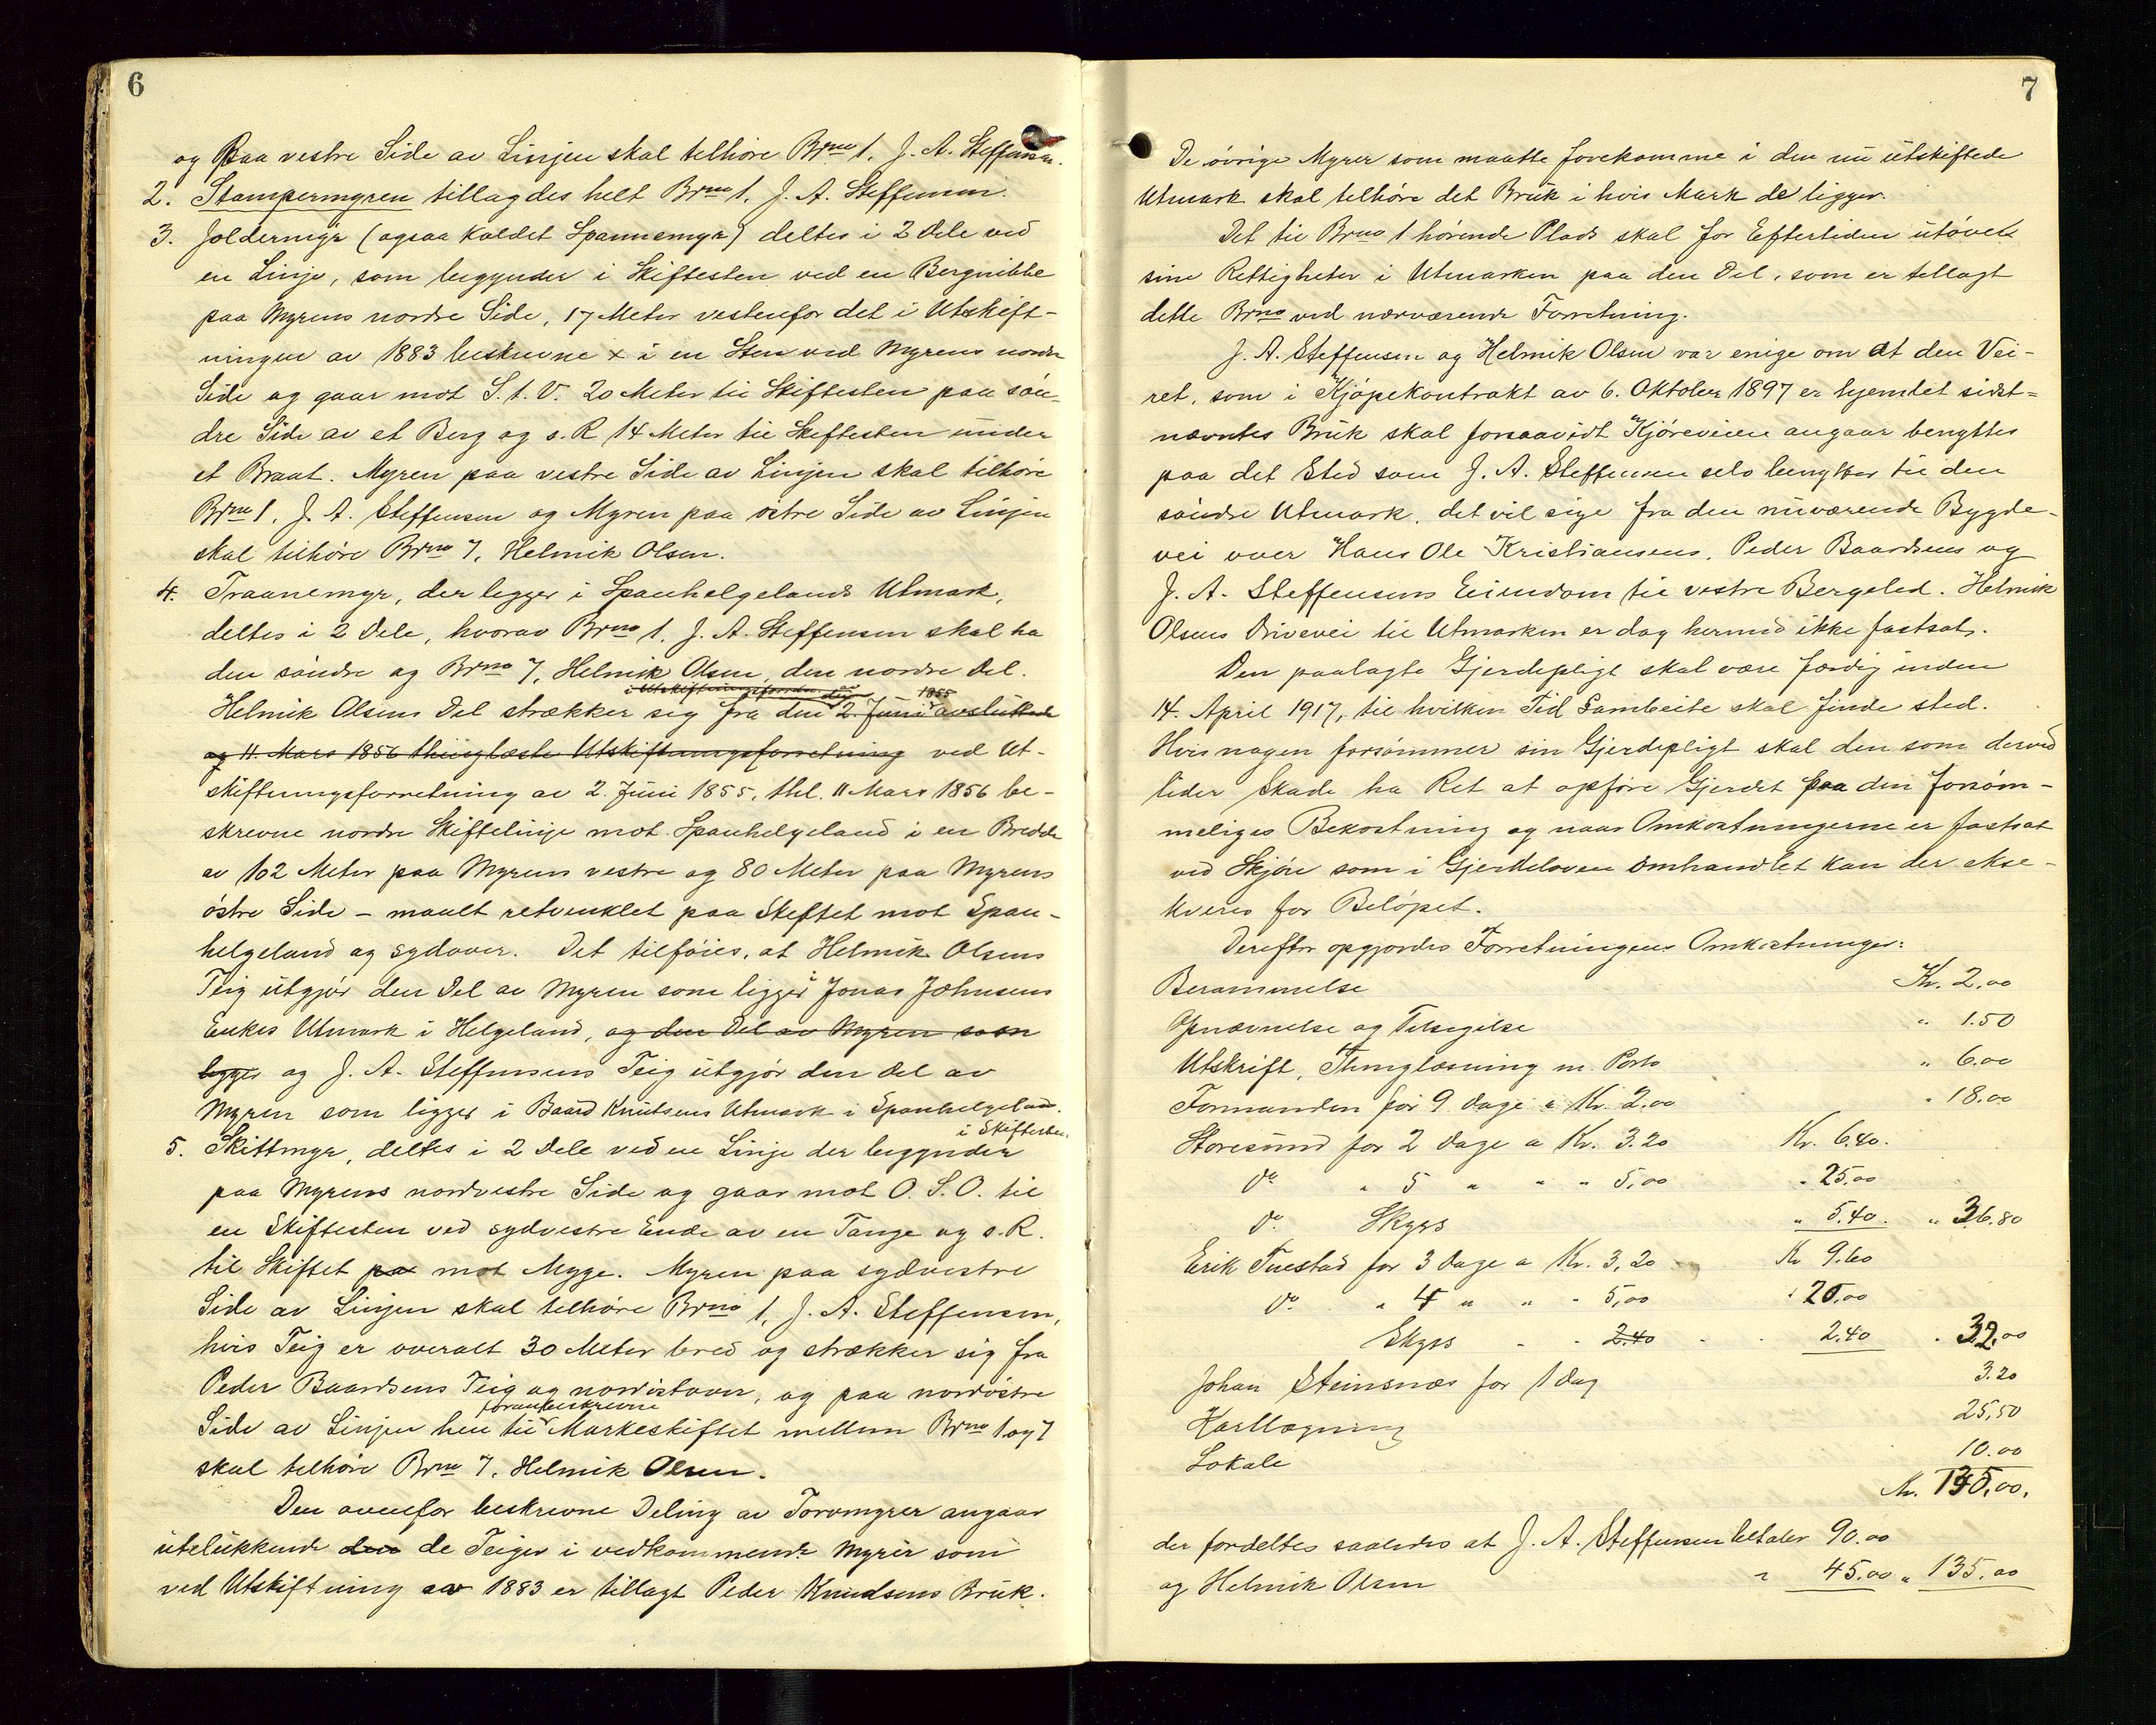 6
og paa vestre Side av Linjen skal tilhøre Brno 1, J. A. Steffensen.
2. Stampermyren tillagdes helt Brno 1, J. A. Steffensen.
3. Joldemyr (ogsaa kaldet Spannemyr) deltes i 2 Dele ved
en Linje, som begynder i Skiftesten ved en Bergnibbe
paa Myrens nordre Side, 17 Meter vestenfor det i Utskift-
ningen av 1883 beskrevne x i en Sten ved Myrens nordre
Side og gaar mot S. t. V. 20 Meter til Skiftesten paa søn-
dre Side av et Berg og s. R. 14 Meter til Skiftesten under
et Braat. Myren paa vestre Side av Linjen skal tilhøre
Brno 1, J. A. Steffensen og Myren paa østre Side av Linjen
skal tilhøre Brno 7, Helmik Olsen.
4. Traanemyr, der ligger i Spanhelgelands Utmark,
deltes i 2 Dele, hvorav Brno 1, J. A. Steffensen skal ha
den søndre og Brno 7, Helmik Olsen, den nordre Del.
Helmik Olsens Del strækker sig fra den 2. Juni 1855 avsluttede
og 11. Mars 1856 thinglæste Utskiftningsforretning ved Ut-
skiftningsforretning av 2. Juni 1855, thl. 11 Mars 1856 be-
skrevne nordre Skiftelinje mot Spanhelgeland i en Bredde
av 102 Meter paa Myrens vestre og 80 Meter paa Myrens
østre Side – maalt retvinklet paa Skiftet mot Span-
helgeland og sydover. Det tilføies, at Helmik Olsens
Teig utgjør den Del av Myren som ligger i Jonas Johnsens
Enkes Utmark i Helgeland, og den Del av Myren som
ligger og J. A. Steffensens Teig utgjør den Del av
Myren som ligger i Baard Knutsens Utmark i Spanhelgeland.
5. Skittmyr, deltes i 2 Dele ved en Linje der begynder i Skiftesten
paa Myrens nordvestre Side og gaar mot O. S. O. til
en Skiftesten ved sydvestre Ende av en Tange og s. R.
til Skiftet pa mot Mygge. Myren paa sydvestre
Side av Linjen skal tilhøre Brno 1, J. A. Steffensen,
hvis Teig er overalt 30 Meter bred og strækker sig fra
Peder Baardsens Teig og nordostover, og paa nordøstre
Side av Linjen hen til foranbeskrevne Markeskiftet mellem Brno 1 og 7
skal tilhøre Brno 7, Helmik Olsen.
Den ovenfor beskrevne Deling av Torvmyrer angaar
utelukkende den de Teiger i vedkommende Myrer som
ved Utskiftning av 1883 er tillagt Peder Knudsens Bruk.
7
De øvrige Myrer som maatte forekomme i den nu utskiftede
Utmark skal tilhøre det Bruk i hvis Mark de ligger.
Det til Brno 1 hørende Plads skal for Eftertiden utøve
sine Rettigheter i Utmarken paa den Del, som er tillagt
dette Brno ved nærværende Forretning.
J. A. Steffensen og Helmik Olsen var enige om at den Vei-
ret, som i Kjøpekontrakt av 6. Oktober 1897 er hjemlet sidst-
nævntes Bruk skal forsaavidt Kjøreveien angaar benyttes
paa det Sted som J. A. Steffensen selv benytter til den
søndre Utmark, det vil sige fra den nuværende Bygde-
vei over Hans Ole Kristiansens, Peder Baardsens og
J. A. Steffensens Eiendom til vestre Bergsled. Helmik
Olsens Drivevei til Utmarken er dog hermed ikke fastsat.
Den paalagte Gjerdepligt skal være færdig inden
14. April 1917, til hvilken Tid Sambeite skal finde sted.
Hvis nogen forsømmer sin Gjerdepligt skal den som derved
lider Skade ha Ret at opføre Gjerdet paa den Forsøm-
meliges Bekostning og naar Omkostningerne er fastsat
ved Skjøn som i Gjerdeloven omhandlet kan der ekse-
kveres for Beløpet.
Derefter opgjordes Forretningens Omkostninger:
Berammelse Kr. 2.00
Opnævnelse og Tilsigelse " 1.50
Utskrift, Thinglæsning m. Porto " 6.00
Formanden for 9 Dage a Kr. 2.00 " 18.00
Storesund for 2 Dage a Kr. 3.20 Kr. 6.40.
do " 5 " " " 5,00 " 25.00
do Skyss " 5.40. " 36.80
Erik Tuestad for 3 Dage a Kr. 3,20 Kr 9.60
do " 4 " " " 5,00 " 20.00
Skyss " " 2.40 2.40 " 32.00
Johan Steinsnæs for 1 Dag 3.20
Kartlægning 25,50
Lokale 10.00
Kr. 135,00.
der fordeltes saaledes at J. A. Steffensen betaler 90.00
og Helmik Olsen " 45.00 " 135.00